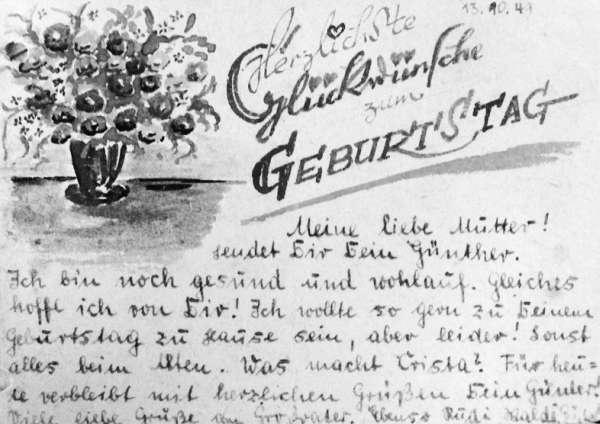 13.10.47
Herzlichste
Glückwünsche
zum
GEBURTSTAG
Meine liebe Mutter!
sendet Dir Dein Günther.
Ich bin noch gesund und wohlauf. Gleiches
hoffe ich von Dir! Ich wollte so gern zu Deinem
Geburtstag zu Hause sein, aber leider! Sonst
alles beim Alten. Was macht Crista? Für heu-
te verbleibt mit herzlichen Grüßen Dein Günter!
Viele liebe Grüße an Großvater. Ebenso Rudi Waldi